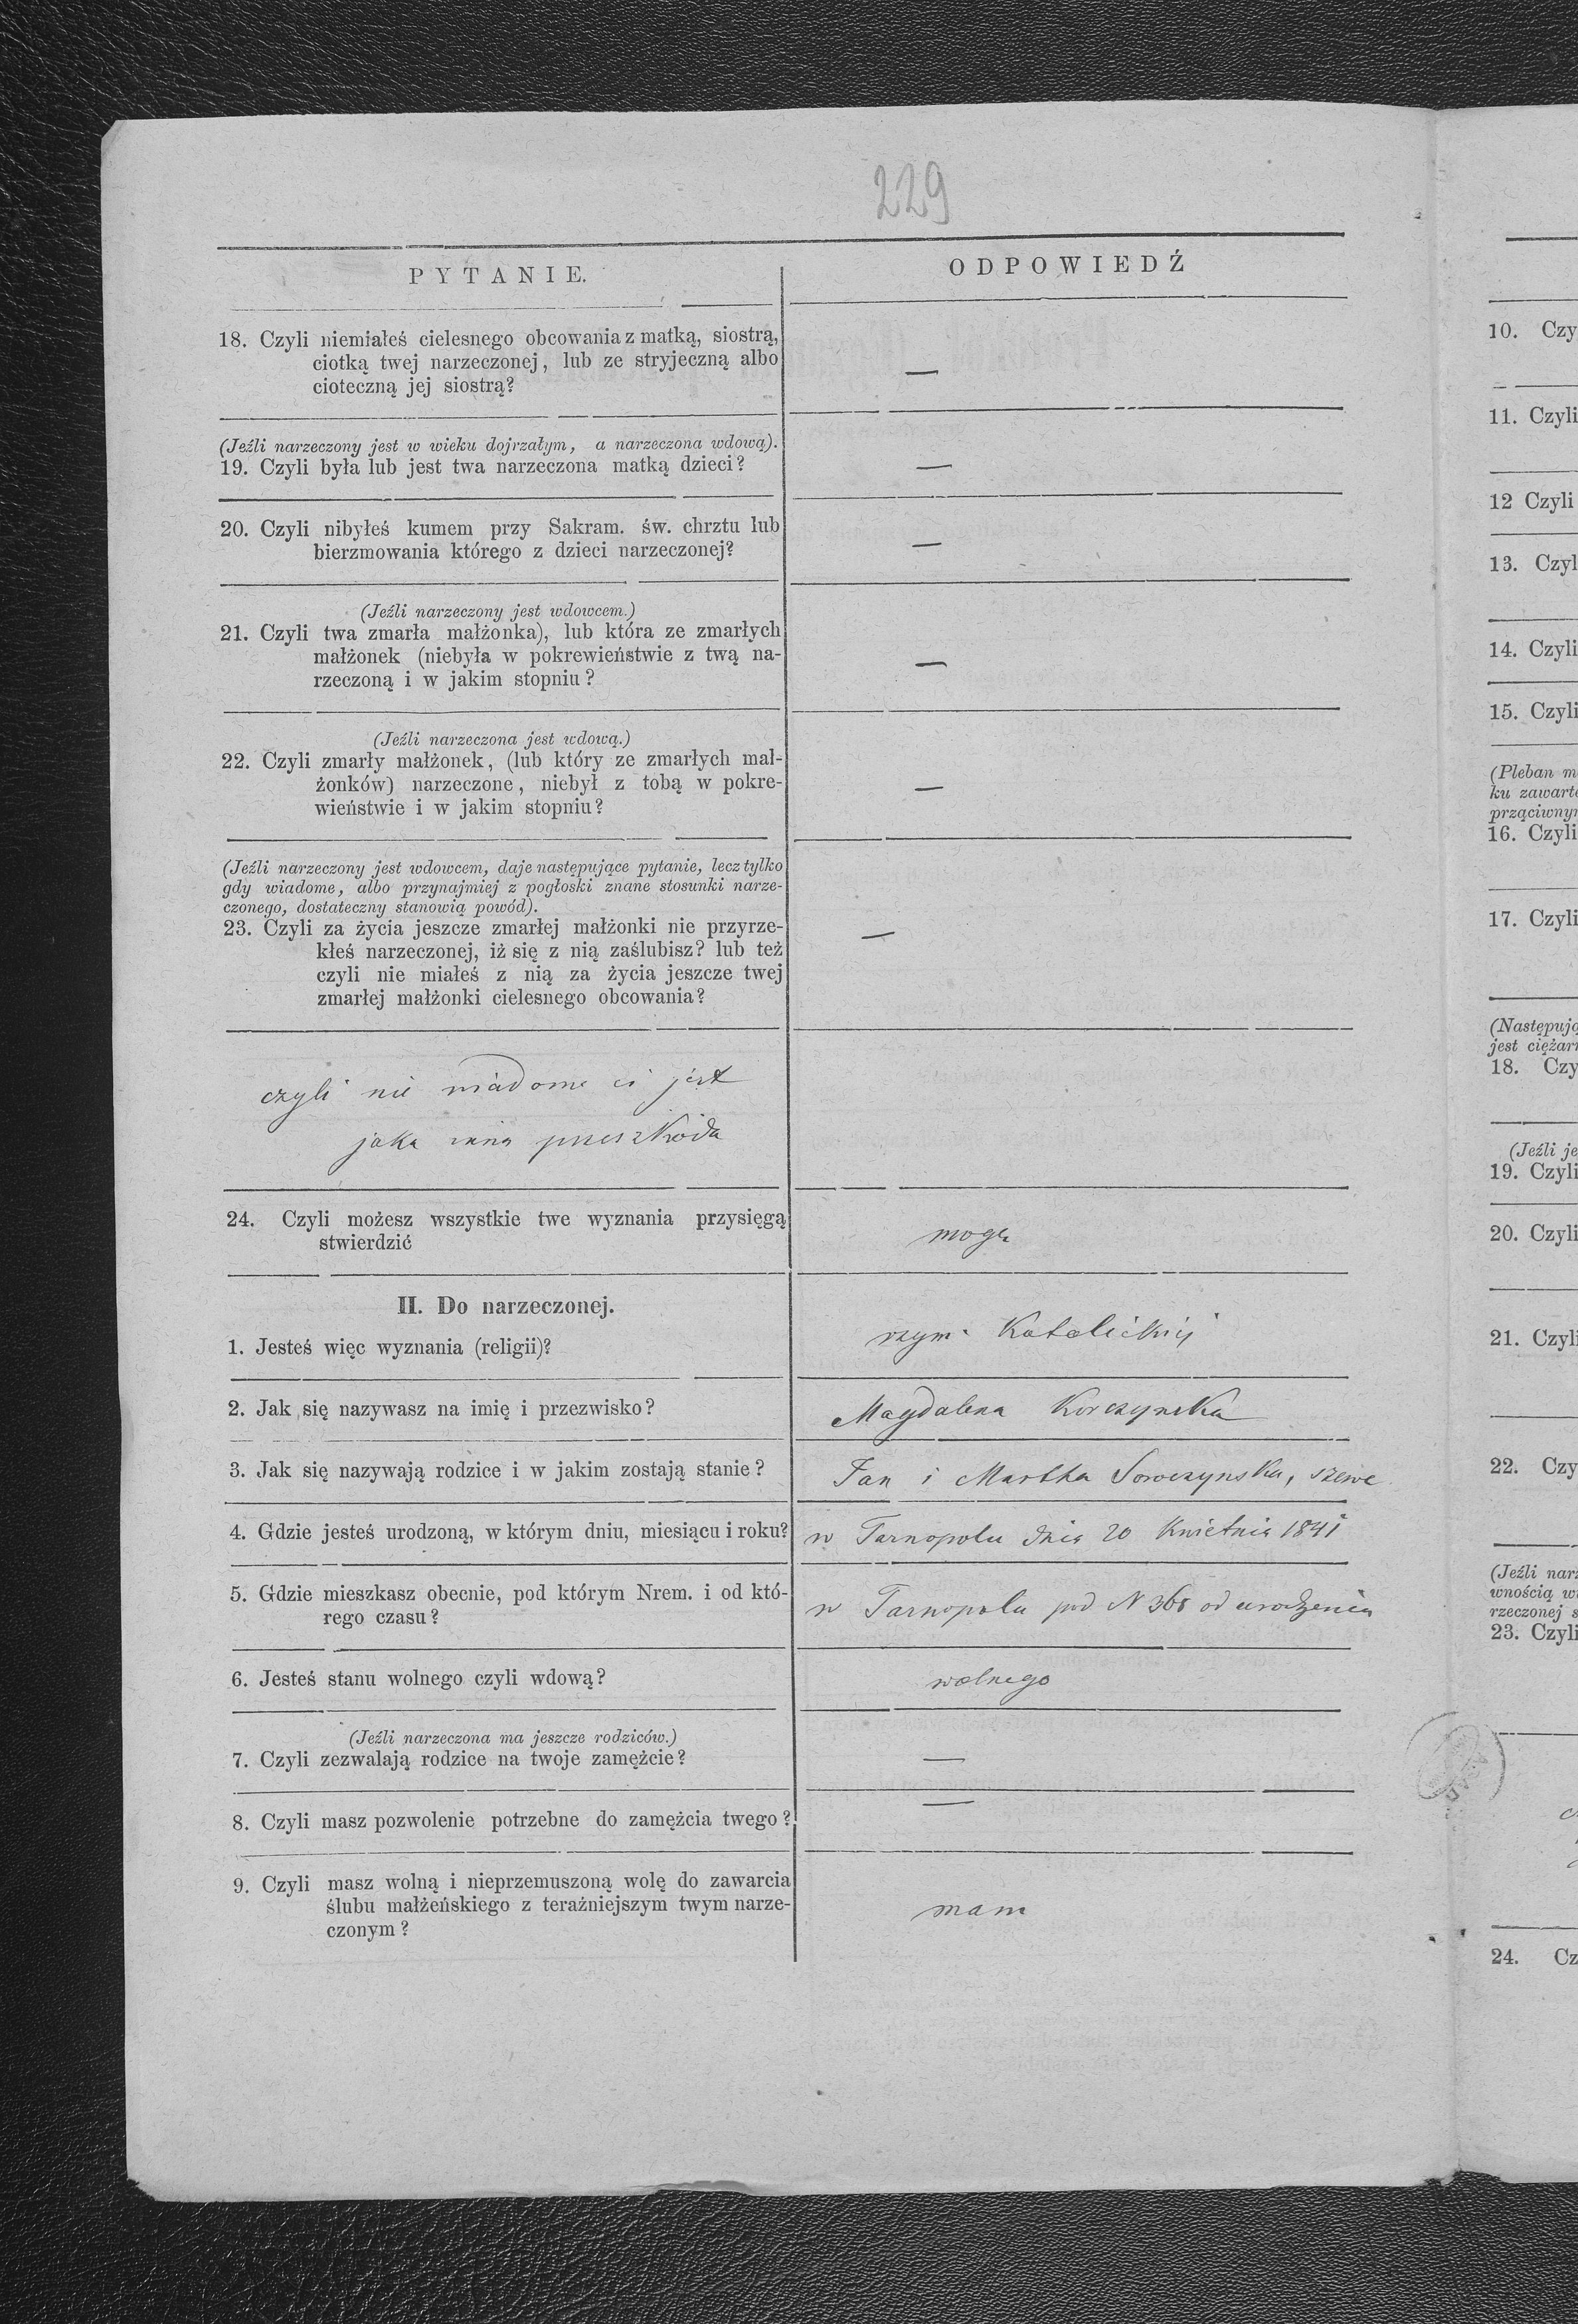 229
PYTANIE.
ODPOWIEDŹ
18. Czyli niemiałeś cielesnego obcowania z matką, siostrą,
ciotką twej narzeczonej, lub ze stryjeczną albo
cioteczną jej siostrą?
—
(Jeźli narzeczony jest w wieku dojrzałym, a narzeczona wdową).
19. Czyli była lub jest twa narzeczona matką dzieci?
—
20. Czyli nibyłeś kumem przy Sakram. św. chrztu lub
bierzmowania którego z dzieci narzeczonej?
—
(Jeźli narzeczony jest wdowcem.)
21. Czyli twa zmarła małżonka), lub która ze zmarłych
małżonek (niebyła w pokrewieństwie z twą na-
rzeczoną i w jakim stopniu?
—
(Jeźli narzeczona jest wdową.)
22. Czyli zmarły małżonek, (lub który ze zmarłych mał-
żonków) narzeczone, niebył z tobą w pokre-
wieństwie i w jakim stopniu?
—
(Jeźli narzeczony jest wdowcem, daje następujące pytanie, lecz tylko
gdy wiadome, albo przynajmiej z pogłoski znane stosunki narze-
czonego, dostateczny stanowią powód).
23. Czyli za życia jeszcze zmarłej małżonki nie przyrze-
kłeś narzeczonej, iż się z nią zaślubisz? lub też
czyli nie miałeś z nią za życia jeszcze twej
zmarłej małżonki cielesnego obcowania?
—
czyli nie wiadome ci jest
jaka inna przeszkoda
24. Czyli możesz wszystkie twe wyznania przysięgą
stwierdzić
mogę
II. Do narzeczonej.
1. Jesteś więc wyznania (religii)?
rzym. Katolickiej
2. Jak się nazywasz na imię i przezwisko?
Magdalena Korczynska
3. Jak się nazywają rodzice i w jakim zostają stanie?
Jan i Martha Sowczynska, szewc
4. Gdzie jesteś urodzoną, w którym dniu, miesiącu i roku?
w Tarnopolu dnia 20 Kwietnia 1841
5. Gdzie mieszkasz obecnie, pod którym Nrem. i od któ-
rego czasu?
w Tarnopolu pod N 368 od urodzenia
6. Jesteś stanu wolnego czyli wdową?
wolnego
(Jeźli narzeczona ma jeszcze rodziców.)
7. Czyli zezwalają rodzice na twoje zamężcie?
—
8. Czyli masz pozwolenie potrzebne do zamężcia twego?
—
9. Czyli masz wolną i nieprzemuszoną wolę do zawarcia
ślubu małżeńskiego z teraźniejszym twym narze-
czonym?
mam
10. Czy
11. Czyli
12 Czyli
13. Czyl
14. Czyli
15. Czyli
(Pleban m
ku zawart
prząciwny
16. Czyli
17. Czyli
(Następują
jest ciężar
18. Czy
(Jeźli je
19. Czyli
20. Czyli
21. Czyli
22. Czy
(Jeźli narz
wnością w
rzeczonej s
23. Czyli
24. Cz